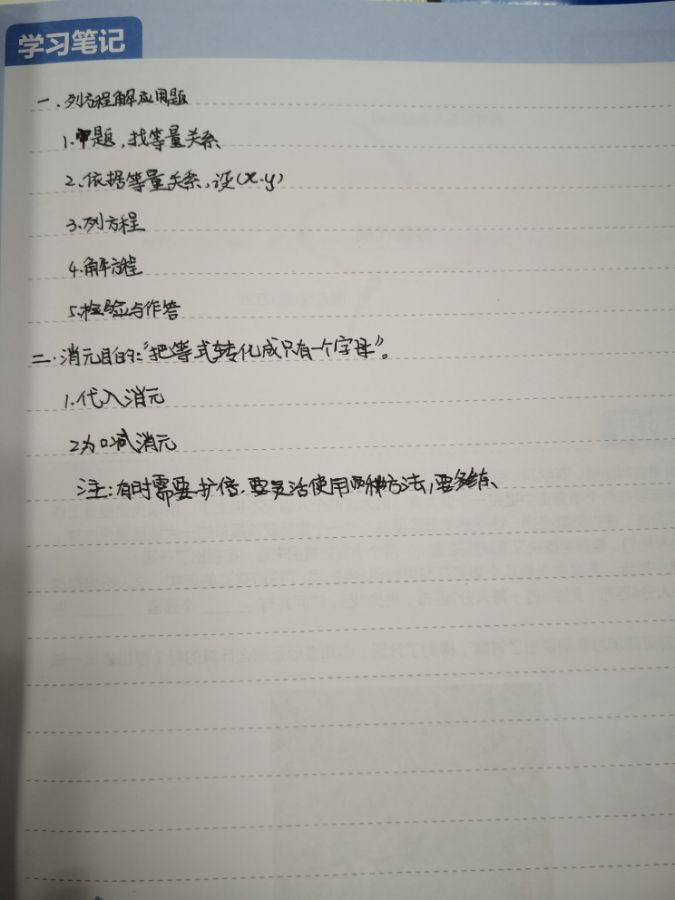 学习笔记
一、列方程解应用题
1.审题,找等量关系
2.依据等量关系,设(x.y)
3.列方程
4.解方程
5.检验与作答
二.消元目的:“把等式转化成只有一个字母”。
1.代入消元
2.加减消元
注:有时需要扩倍.要灵活使用两种方法,要多练、